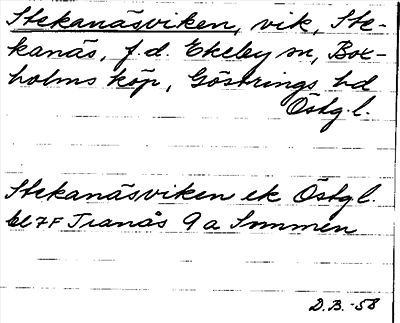 Stekanäsviken, vik, Ste-
kanäs, f.d. Ekeby sn, Box-
holms köp, Göstrings hd
Östg.l.
Stekanäsviken ek Östgl.
bl 7F Tranås 9a Sommen
D.B.-58